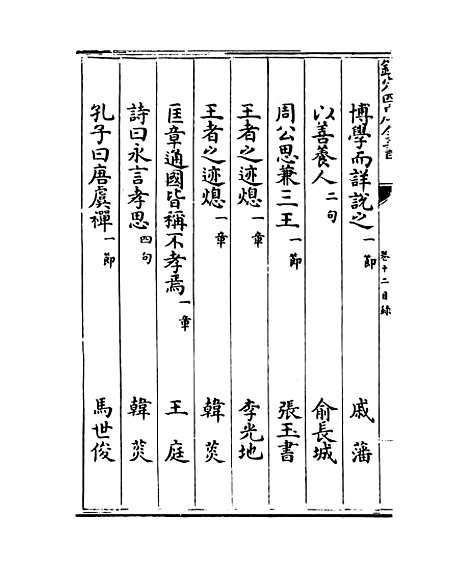 卷十二目錄
博學而詳說之一節 戚藩
以善養人二句 俞長城
周公思兼三王一節 張玉書
王者之迹熄一章 李光地
王者之迹熄一章 韓菼
匡章通國皆稱不孝焉一章 王庭
詩曰永言孝思四句 韓菼
孔子曰唐虞禪一節 馬世俊